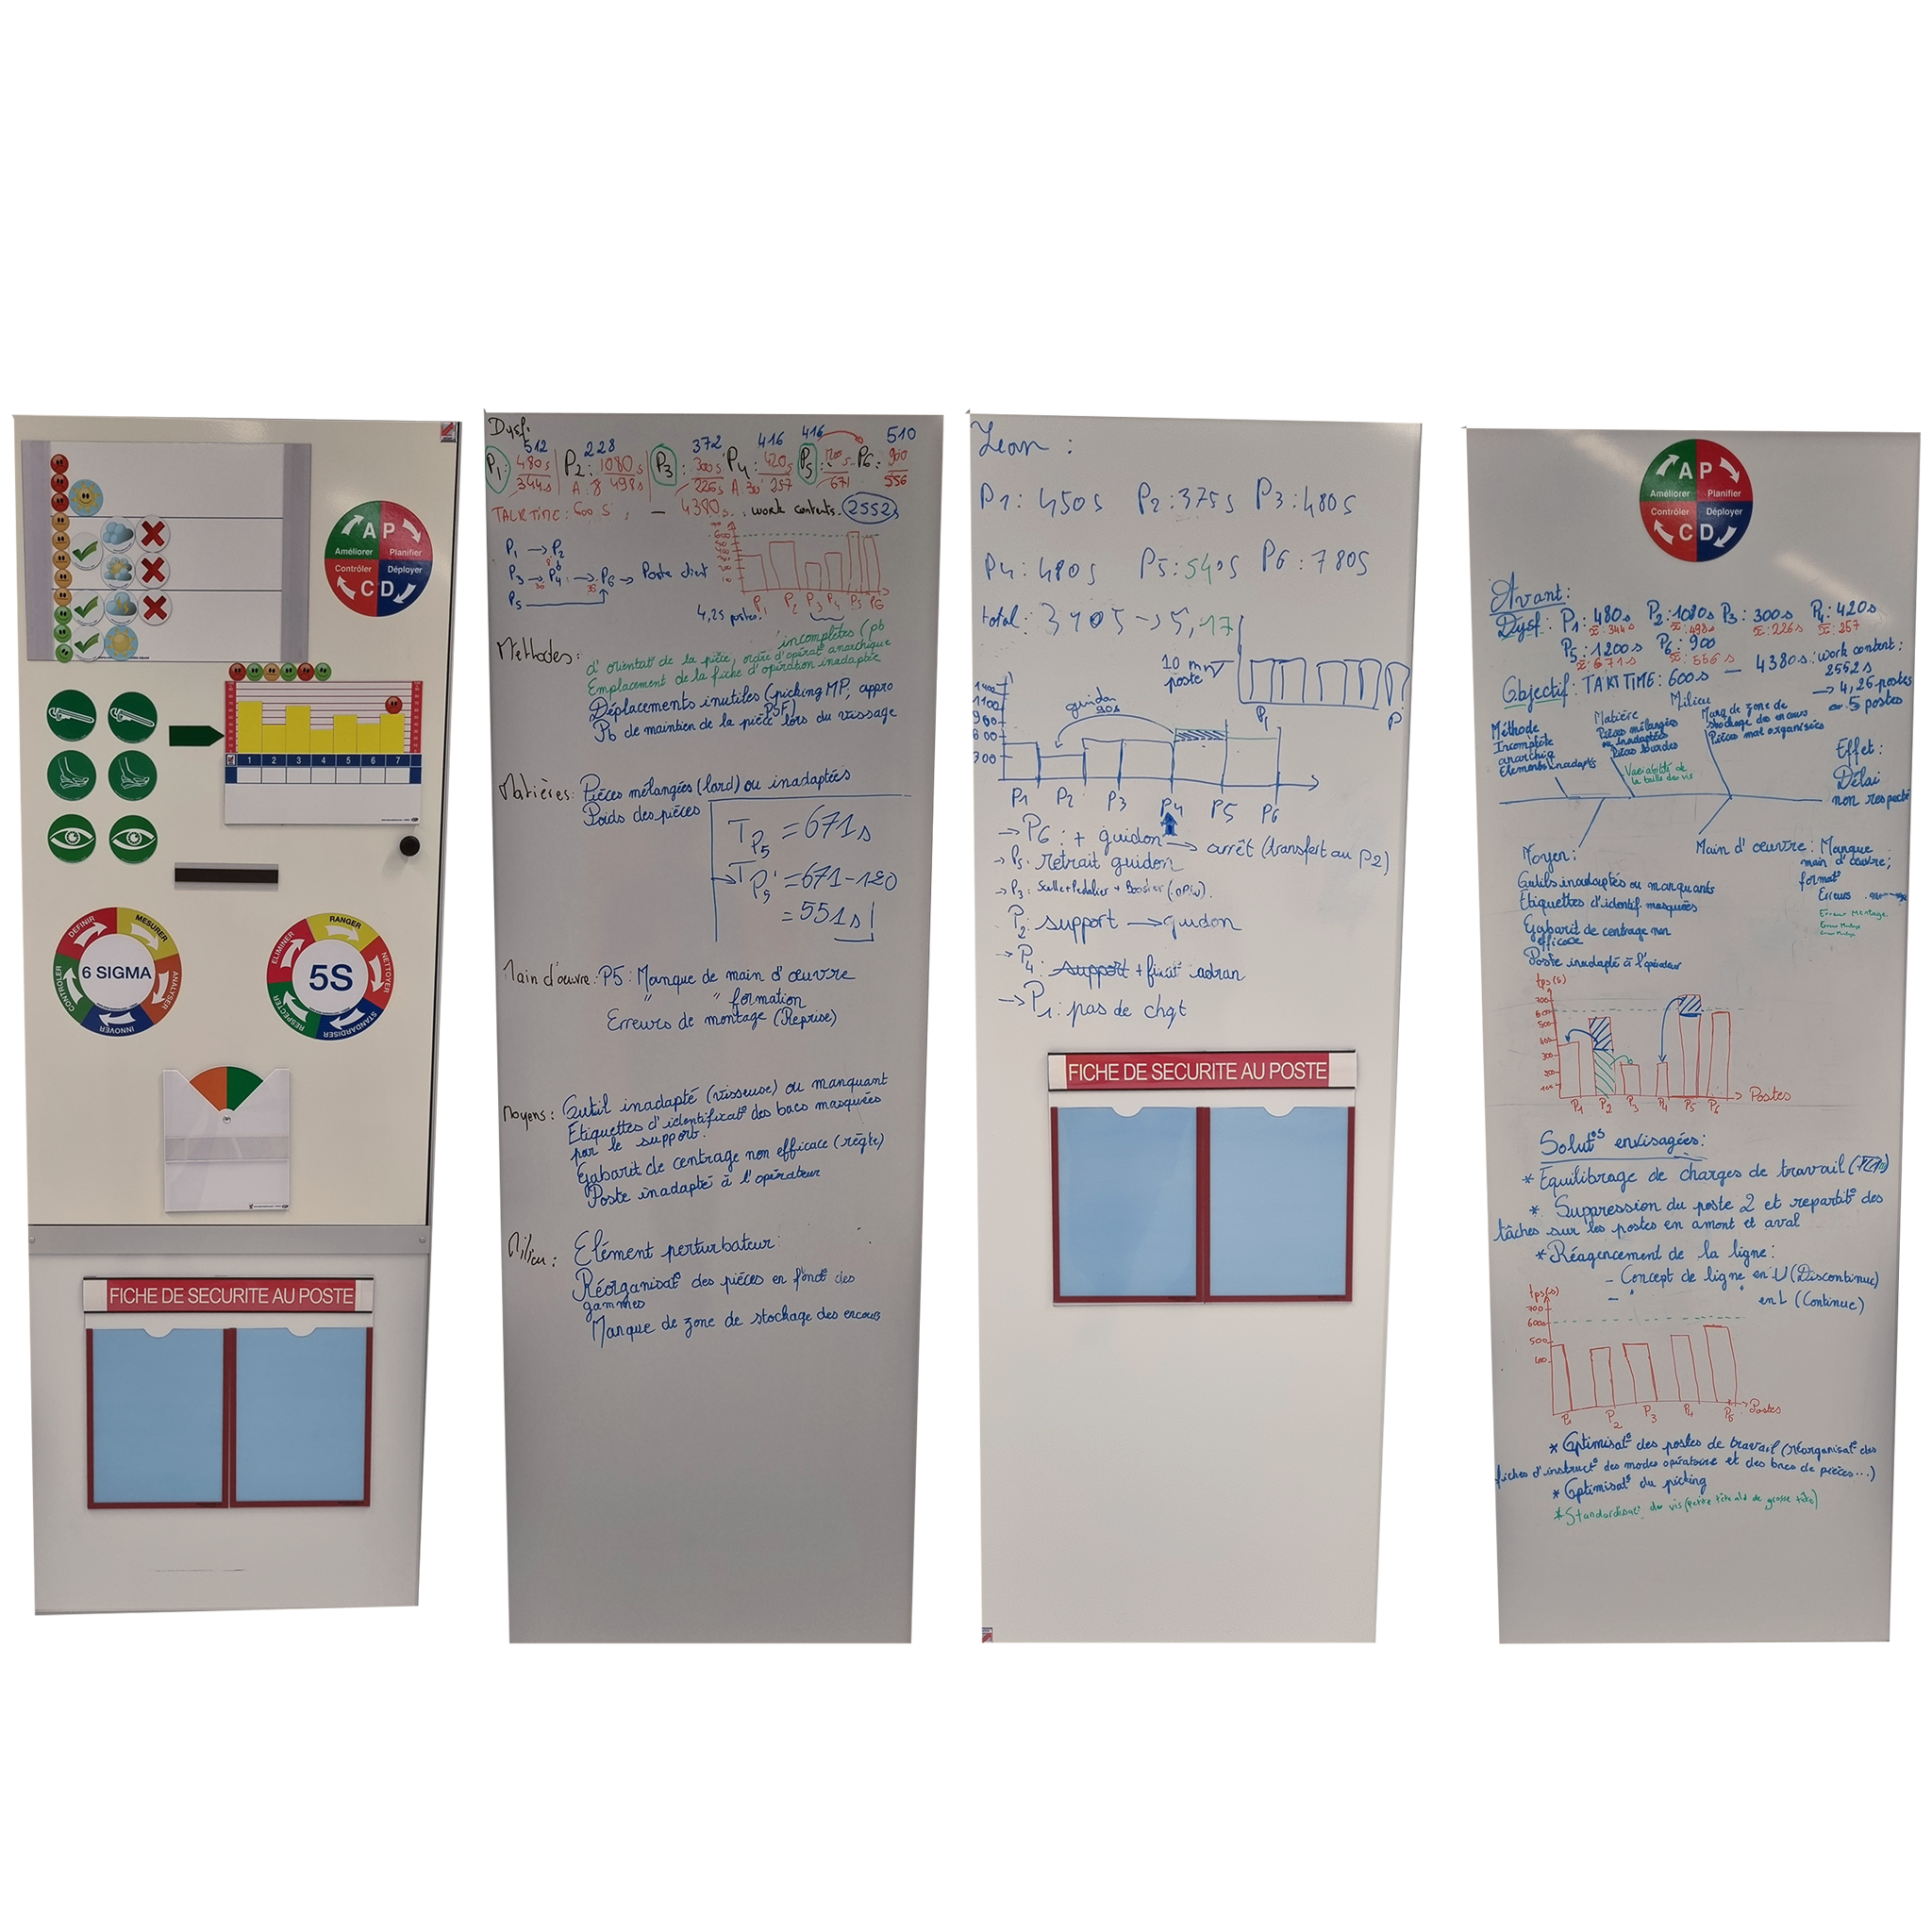 A P
Améliorer Planifier
Contrôler Déployer
C D
1 2 3 4 5 6 7
6 SIGMA
DÉFINIR
MESURER
ANALYSER
INNOVER
CONTRÔLER
5S
ELIMINER
RANGER
NETTOYER
STANDARDISER
RESPECTER
FICHE DE SECURITE AU POSTE
Dysf:
512 228 372 416 416 510
P1: 480s P2: 1080s P3: 300s P4: 420s P5: P6: 900
344s A: 8 498s 226s A: 30 257 671 556
TALK TIME: 600 s; — 4380s. : work contents. 2552s
P1 → P2
P3 → P4 → P6 → Poste client
P5
P1 P2 P3 P4 P5 P6
4,25 postes.
Méthodes: incomplètes (pb
d'orientat° de la pièce, ordre d'opérat° anarchique
Emplacement de la fiche d'opération inadaptée
Déplacements inutiles (picking MP, appro
PSF)
Pb de maintien de la pièce lors du vissage
Matières: Pièces mélangées (lard) ou inadaptées
Poids des pièces
TP5 = 671s
→ TP5' = 671-120
= 551s!
Main d'œuvre: P5: Manque de main d'œuvre
" " formation
Erreurs de montage (Reprise)
Moyens: Outil inadapté (visseuse) ou manquant
Etiquettes d'identificat° des bacs masquées
par le support.
Gabarit de centrage non efficace (règle)
Poste inadapté à l'opérateur
Milieu: Elément perturbateur:
Réorganisat° des pièces en fonct° des
gammes
Manque de zone de stockage des encours
Lean:
P1: 450s P2: 375s P3: 480s
P4: 480s P5: 540s P6: 780s
total: 3105 → 5,17
10 mn
poste
P1 P
guidon
90s
1100
900
600
300
P1 P2 P3 P4 P5 P6
→ P6: + guidon → arrêt (transfert au P2)
→ P5: retrait guidon
→ P3: Selle+Pedalier + Booster (:OPIN).
P2: support → guidon
→ P4: support + fixat° cadran
→ P1: pas de chgt
FICHE DE SECURITE AU POSTE
A P
Améliorer Planifier
Contrôler Déployer
C D
Avant:
Dysf: P1: 480s P2: 1080s P3: 300s P4: 420s
x̄: 344s x̄: 498s x̄: 226s x̄: 257
P5: 1200s P6: 900
x̄: 671s x̄: 556s — 4380s: work content:
2552s
Objectif: TAKT TIME: 600s → 4,26 postes
~ 5 postes
Méthode
Incomplète
anarchiq
Elements inadaptés
Matière
Pièces mélangées
ou inadaptées
Pièces lourdes
Variabilité de
la taille des vis
Milieu
Manq de zone de
stockage des encours
Pièces mal organisées
Effet:
Délai
non respecté
Moyen:
Outils inadaptés ou manquants
Etiquettes d'identif. masquées
Gabarit de centrage non
efficace
Poste inadapté à l'opérateur
Main d'œuvre: Manque
main d'œuvre;
format°
Erreurs
Erreur Montage
tps(s)
700
600
500
400
300
200
100
P1 P2 P3 P4 P5 P6 Postes
Solut°s envisagées:
* Equilibrage de charges de travail
* Suppression du poste 2 et repartit° des
tâches sur les postes en amont et aval
* Réagencement de la ligne:
- Concept de ligne en U (Discontinue)
- " en L (Continue)
tps(s)
700
600
500
400
P1 P2 P3 P4 P5 Postes
* Optimisat° des postes de travail (réorganisat° des
fiches d'instruct° des modes opératoire et des bacs de pièces...)
* Optimisat° du picking
* Standardisat° des vis (petite tête de grosse tête)